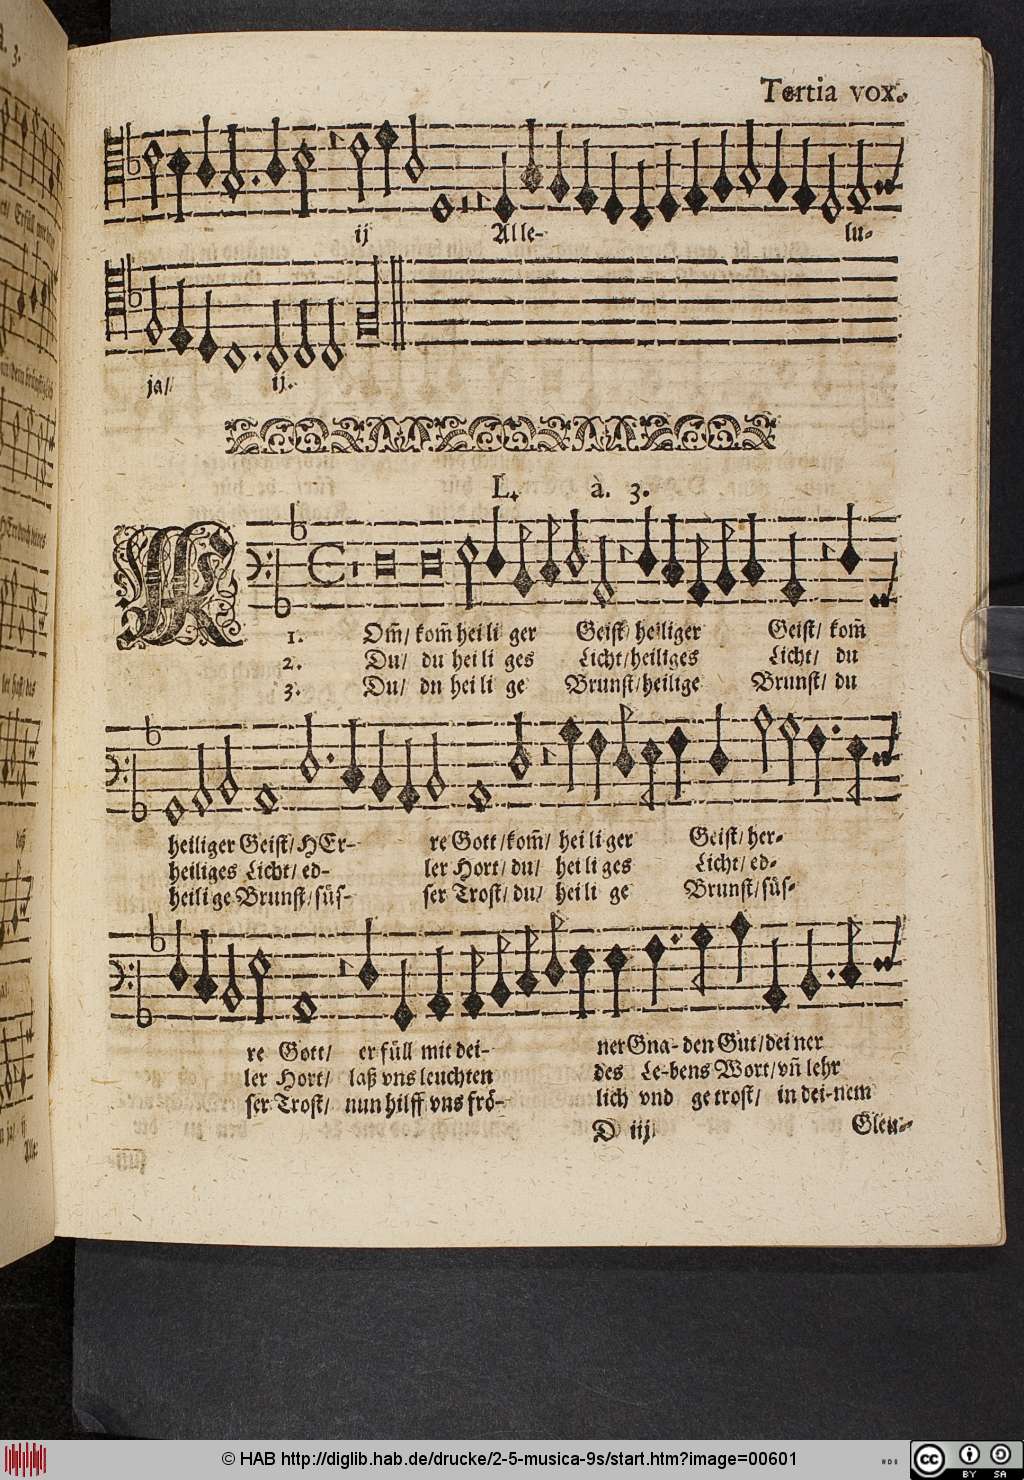 Tertia vox.
ij Alle- lu-
ja/ ij.
L. à. 3.
K
1. Om̃/ kom̃ hei li ger Geist/ heiliger Geist/ kom̃
2. Du/ du hei li ges Licht/ heiliges Licht/ du
3. Du/ dn hei li ge Brunst/ heilige Brunst/ du
heiliger Geist/ HEr- re Gott/ kom̃/ hei li ger Geist/ her-
heiliges Licht/ ed- ler Hort/ du/ hei li ges Licht/ ed-
heili ge Brunst/ süs- ser Trost/ du/ hei li ge Brunst/ süs-
re Gott/ er füll mit dei- ner Gna- den Gut/ dei ner
ler Hort/ laß vns leuchten des Le-bens Wort/ vn̄ lehr
ser Trost/ nun hilff vns frö- lich vnd ge trost/ in dei-nem
D iij Gleu-
© HAB http://diglib.hab.de/drucke/2-5-musica-9s/start.htm?image=00601
cc BY SA